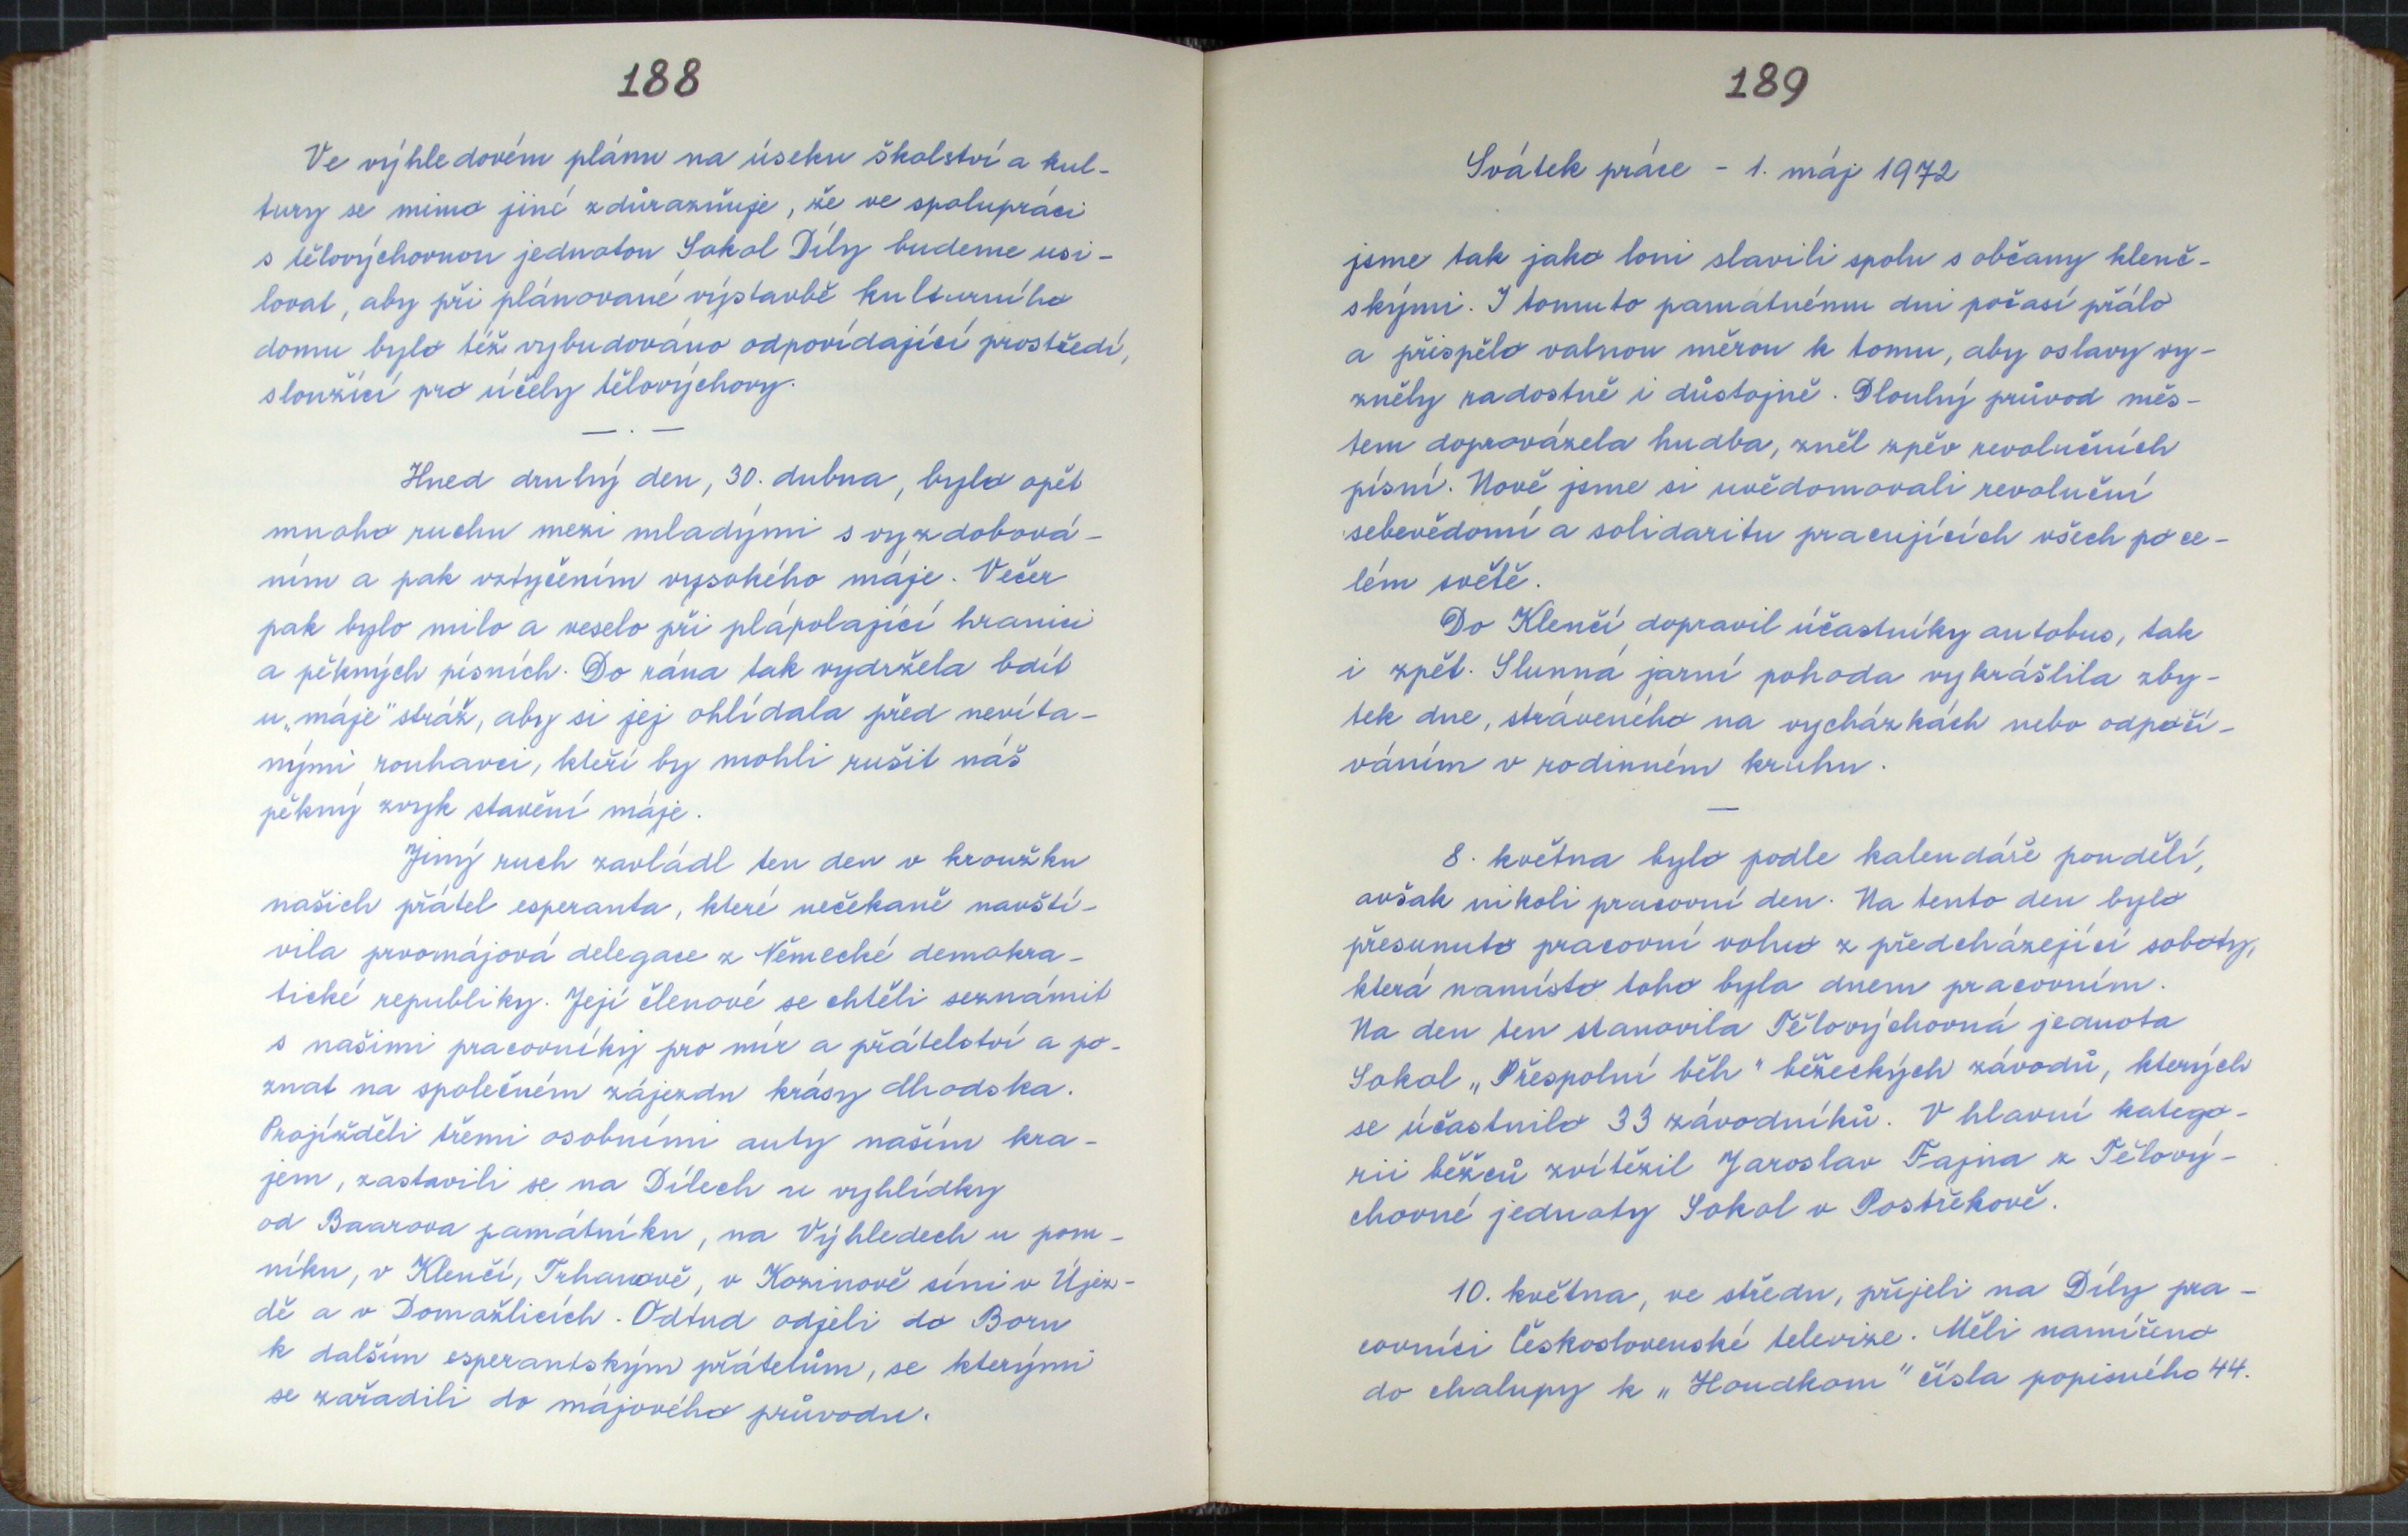 188
Ve výhledovém plánu na úseku školství a kul-
tury se mimo jiné zdůrazňuje, že ve spolupráci
s tělovýchovnou jednotou Sokol Díly budeme usi-
lovat, aby při plánované výstavbě kulturního
domu bylo též vybudováno odpovídající prostředí,
sloužící pro účely tělovýchovy.
— . —
Hned druhý den, 30. dubna, bylo opět
mnoho ruchu mezi mladými s vyzdobová-
ním a pak vztyčením vysokého máje. Večer
pak bylo milo a veselo při plápolající hranici
a pěkných písních. Do rána tak vydržela bdít
u „máje" stráž, aby si jej ohlídala před nevíta-
nými rouhavci, kteří by mohli rušit náš
pěkný zvyk stavění máje.
Jiný ruch zavládl ten den v kroužku
našich přátel esperanta, které nečekaně navští-
vila prvomájová delegace z Německé demokra-
tické republiky. Její členové se chtěli seznámit
s našimi pracovníky pro mír a přátelství a po-
znat na společném zájezdu krásy Chodska.
Projížděli třemi osobními auty naším kra-
jem, zastavili se na Dílech u vyhlídky
od Baarova památníku, na Výhledech u pom-
níku, v Klenčí, Trhanově, v Kozinově síni v Újez-
dě a v Domažlicích. Odtud odjeli do Boru
k dalším esperantským přátelům, se kterými
se zařadili do májového průvodu.
189
Svátek práce - 1. máj 1972
jsme tak jako loni slavili spolu s občany klenč-
skými. I tomuto památnému dni počasí přálo
a přispělo valnou měrou k tomu, aby oslavy vy-
zněly radostně i důstojně. Dlouhý průvod měs-
tem doprovázela hudba, zněl zpěv revolučních
písní. Nově jsme si uvědomovali revoluční
sebevědomí a solidaritu pracujících všech po ce-
lém světě.
Do Klenčí dopravil účastníky autobus, tak
i zpět. Slunná jarní pohoda vykrášlila zby-
tek dne, stráveného na vycházkách nebo odpočí-
váním v rodinném kruhu.
—
8. května bylo podle kalendáře pondělí,
avšak nikoli pracovní den. Na tento den bylo
přesunuto pracovní volno z předcházející soboty,
která namísto toho byla dnem pracovním.
Na den ten stanovila Tělovýchovná jednota
Sokol „Přespolní běh" běžeckých závodů, kterých
se účastnilo 33 závodníků. V hlavní katego-
rii běžců zvítězil Jaroslav Fajna z Tělový-
chovné jednoty Sokol v Postřekově.
10. května, ve středu, přijeli na Díly pra-
covníci Československé televize. Měli namířeno
do chalupy k „Houdkom" čísla popisného 44.